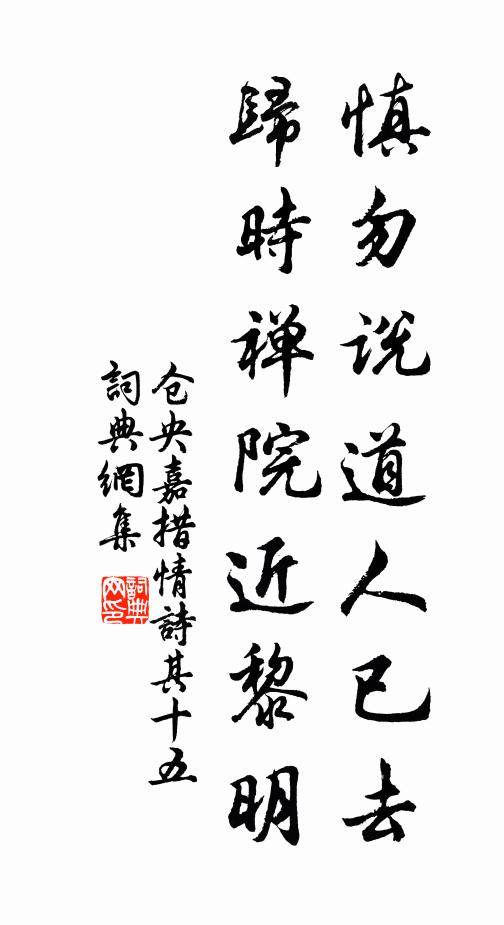 慎勿説道人已去
歸時禅院近黎明
仓央嘉措情詩其十五
詞典網集
詞典網印